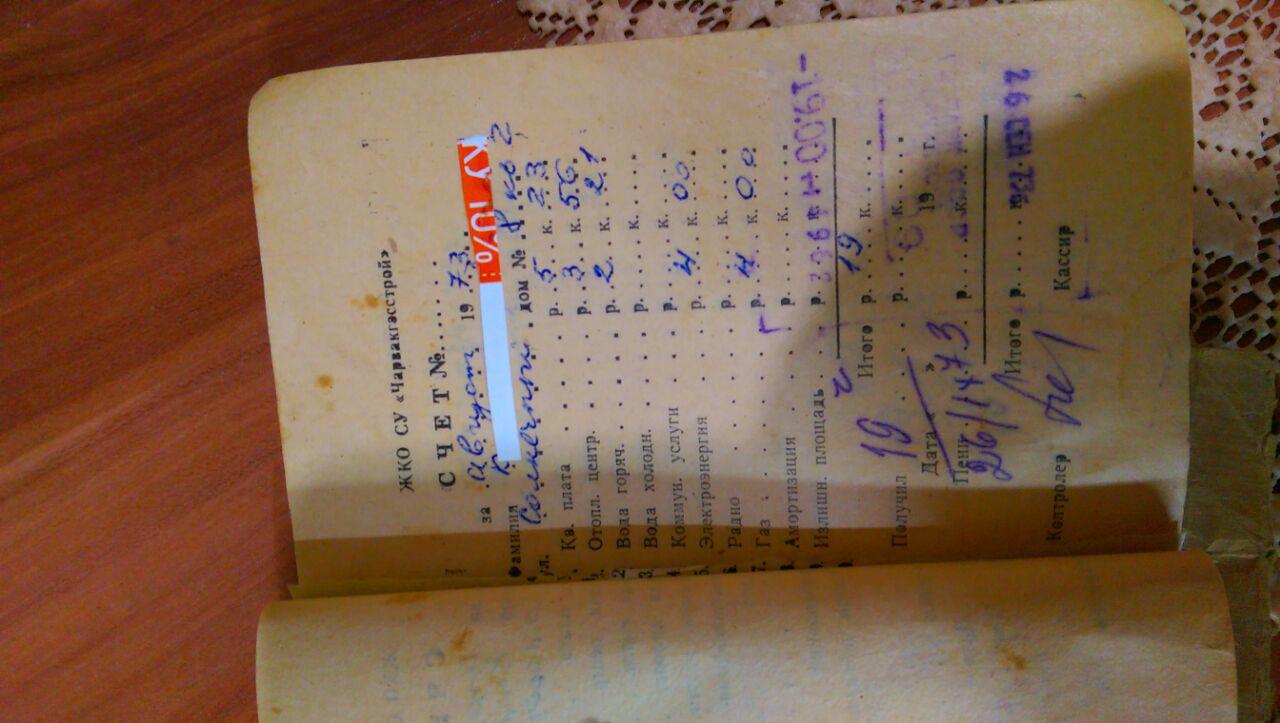 ЖКО СУ «Чарвакгасстрой»
СЧЕТ №
за август 1973.
КУ 10%
Фамилия К
ул. Солнечный дом № 8 кв 2
Кв. плата р. 5 к. 23
Отопл. центр. р. 3 к. 56
2 Вода горяч. р. 2 к. 21
3. Вода холодн. р. к.
4. Коммун. услуги р. к.
5. Электроэнергия р. 4 к. 00
6. Радно р. к.
7. Газ р. 4 к. 00
8. Амортизация р. к.
9. Излишн. площадь р. к. -19.00
Итого р. 19 к.
Получил 19 р. к.
Дата « » 19 г.
Пени р. к.
26/IX73
Итого р. к. 26 СЕН 73
Контролер Кассир